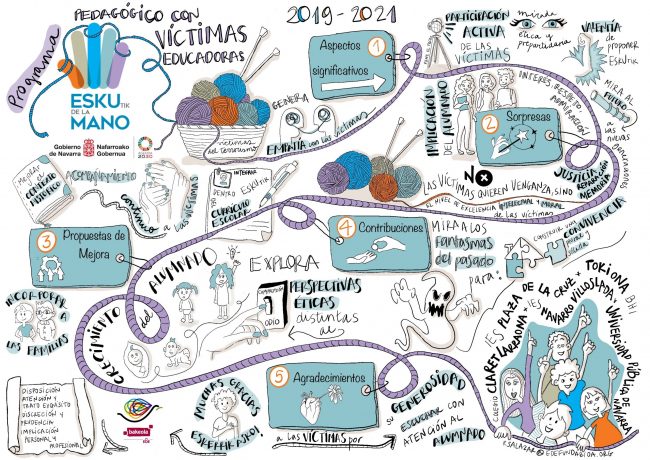 Programa
PEDAGÓGICO CON
VÍCTIMAS
EDUCADORAS
2019-2021
ESKUTIK
DE LA
MANO
Gobierno
de Navarra
Nafarroako
Gobernua
víctimas
del terrorismo
GENERA
EMPATÍA con las víctimas
Aspectos
significativos
1
PARTICIPACIÓN
ACTIVA
DE LAS
VÍCTIMAS
mirada
ética y
VALENTÍA
de proponer
ESKUTIK
MIRA AL
FUTURO
a las nuevas
generaciones
IMPLICACIÓN
DEL ALUMNADO
INTERÉS, RESPETO
ADMIRACIÓN
2
Sorpresas
NO
LAS VÍCTIMAS QUIEREN VENGANZA, SINO
JUSTICIA
REPARACIÓN
MEMORIA
EL NIVEL DE EXCELENCIA INTELECTUAL Y MORAL
de las víctimas
CONTEXTO
HISTÓRICO
ACOMPAÑAMIENTO
CONTINUO
a las VÍCTIMAS
INTEGRAR
ESKUTIK
DENTRO
DEL
CURRÍCULO
ESCOLAR
3
Propuestas de
Mejora
INCORPORAR
A
LAS FAMILIAS
4
Contribuciones
MIRA A LOS
FANTASMAS
DEL PASADO
para:
CONSTRUIR UNA
CONVIVENCIA
CRECIMIENTO
del
ALUMNADO
EXPLORA
PERSPECTIVAS
ÉTICAS
distintas
al
ODIO
5
Agradecimientos
a las VÍCTIMAS por
su
GENEROSIDAD
ESCUCHAR CON
ATENCIÓN AL
ALUMNADO
MUCHAS GRACIAS
ESKERRIK ASKO!
DISPOSICIÓN
ATENCIÓN Y
TRATO EXQUISITO
DISCRECIÓN Y
PRUDENCIA
IMPLICACIÓN
PERSONAL Y
PROFESIONAL
bakeola
EDE
IES PLAZA
DE LA CRUZ
TOKI ONA BHI
COLEGIO CLARET LARRAONA
IES NAVARRO VILLOSLADA
UNIVERSIDAD
PÚBLICA
DE NAVARRA
SALAZAR@EDEFUNDAZIOA.ORG